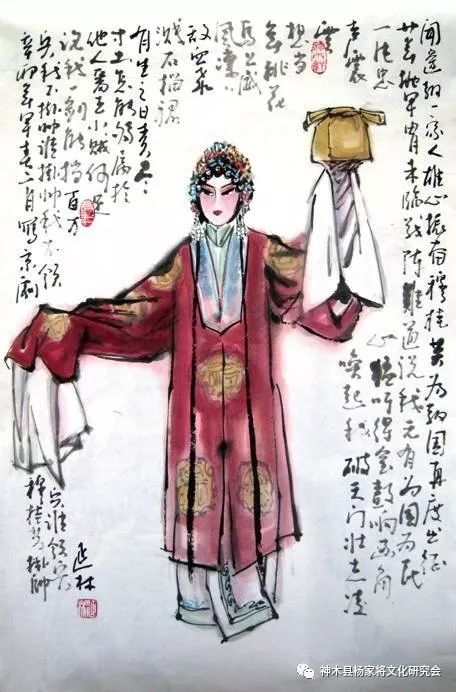 闻边报一家人雄心振奋穆桂英为保国再度出征
廿年抛甲胄未临战阵难道说我无有为国为民
一片忠
心猛听得金鼓响画角
声震
唤起我破天门壮志凌
云
想当
年桃花
马上威
风凛凛
敌血飞
溅石榴裙
有生之日责当尽
寸土怎能够属于
他人番王小贼何足
论我一剑能挡百万
兵我不挂帅谁挂帅我不领
辛卯年 二月写京剧
兵谁领兵
穆桂英挂帅
延林
神木县杨家将文化研究会